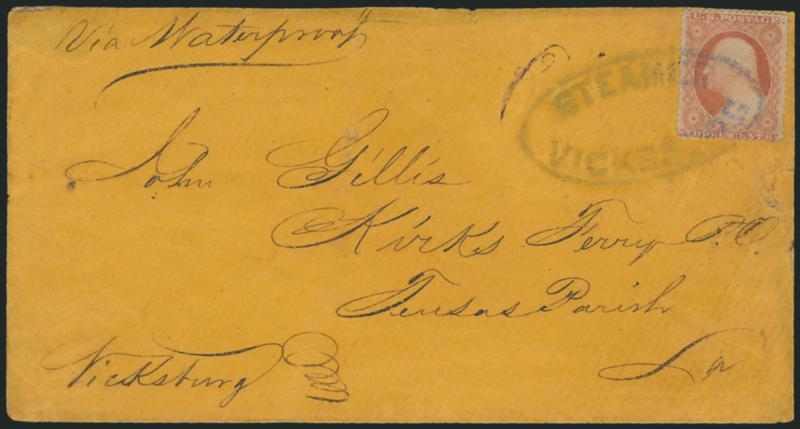 Via Waterproof
STEAMER
VICKSB
U.S. POSTAGE
John Gillis
Kirks Ferry P.O.
Tensas Parish
La
Vicksburg